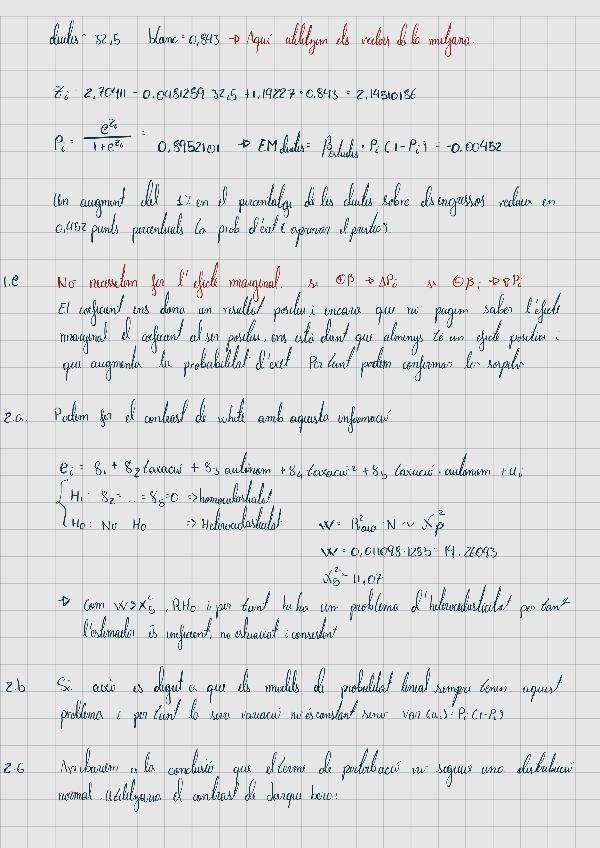 deutes = 32,5 blanc = 0,843 → Aquí utilitzem els valors de la mitjana.
Zi = 2,70411 - 0.0481259 · 32,5 + 1,19227 · 0.843 = 2,14510136
Pi = e^Zi / 1+e^Zi = 0,8952101 → EM deutes = βdeutes · Pi (1-Pi) = -0.00452
Un augment del 1% en el percentatge de les deutes sobre els ingressos redueix en
0,452 punts percentuals la prob d'èxit (aprovar el préstec).
1.e No necessitem fer l'efecte marginal. si ⊕β → ΔPi si ⊖βi → ∇Pi
El coeficient ens dona un resultat positiu i encara que no puguem saber l'efecte
marginal el coeficient al ser positiu, ens està dient que almenys té un efecte positiu i
que augmenta la probabilitat d'èxit. Per tant podem confirmar la
2.a. Podem fer el contrast de white amb aquesta informació
ei = δ1 + δ2 taxació + δ3 autònom + δ4 taxació² + δ5 taxació · autònom + ui
H1: δ2 = ... = δ5 = 0 => homocedasticitat
H0: No H0 => Heterocedasticitat W = R²aux · N ~ χ²p
W = 0,011098 · 1285 = 14.26093
χ²5 = 11,07
→ Com W > χ²5, RH0 i per tant hi ha un problema d'heterocedasticitat per tant
l'estimador és ineficient, no esbiaixat i consistent
2.b Sí, això es degut a que els models de probabilitat lineal sempre tenen aquest
problema i per tant la seva variació no és constant sinó var(ui) = Pi(1-Pi)
2.c Arribarem a la conclusió que el terme de pertorbació no segueix una distribució
normal. Utilitzaria el contrast de Jarque bera: